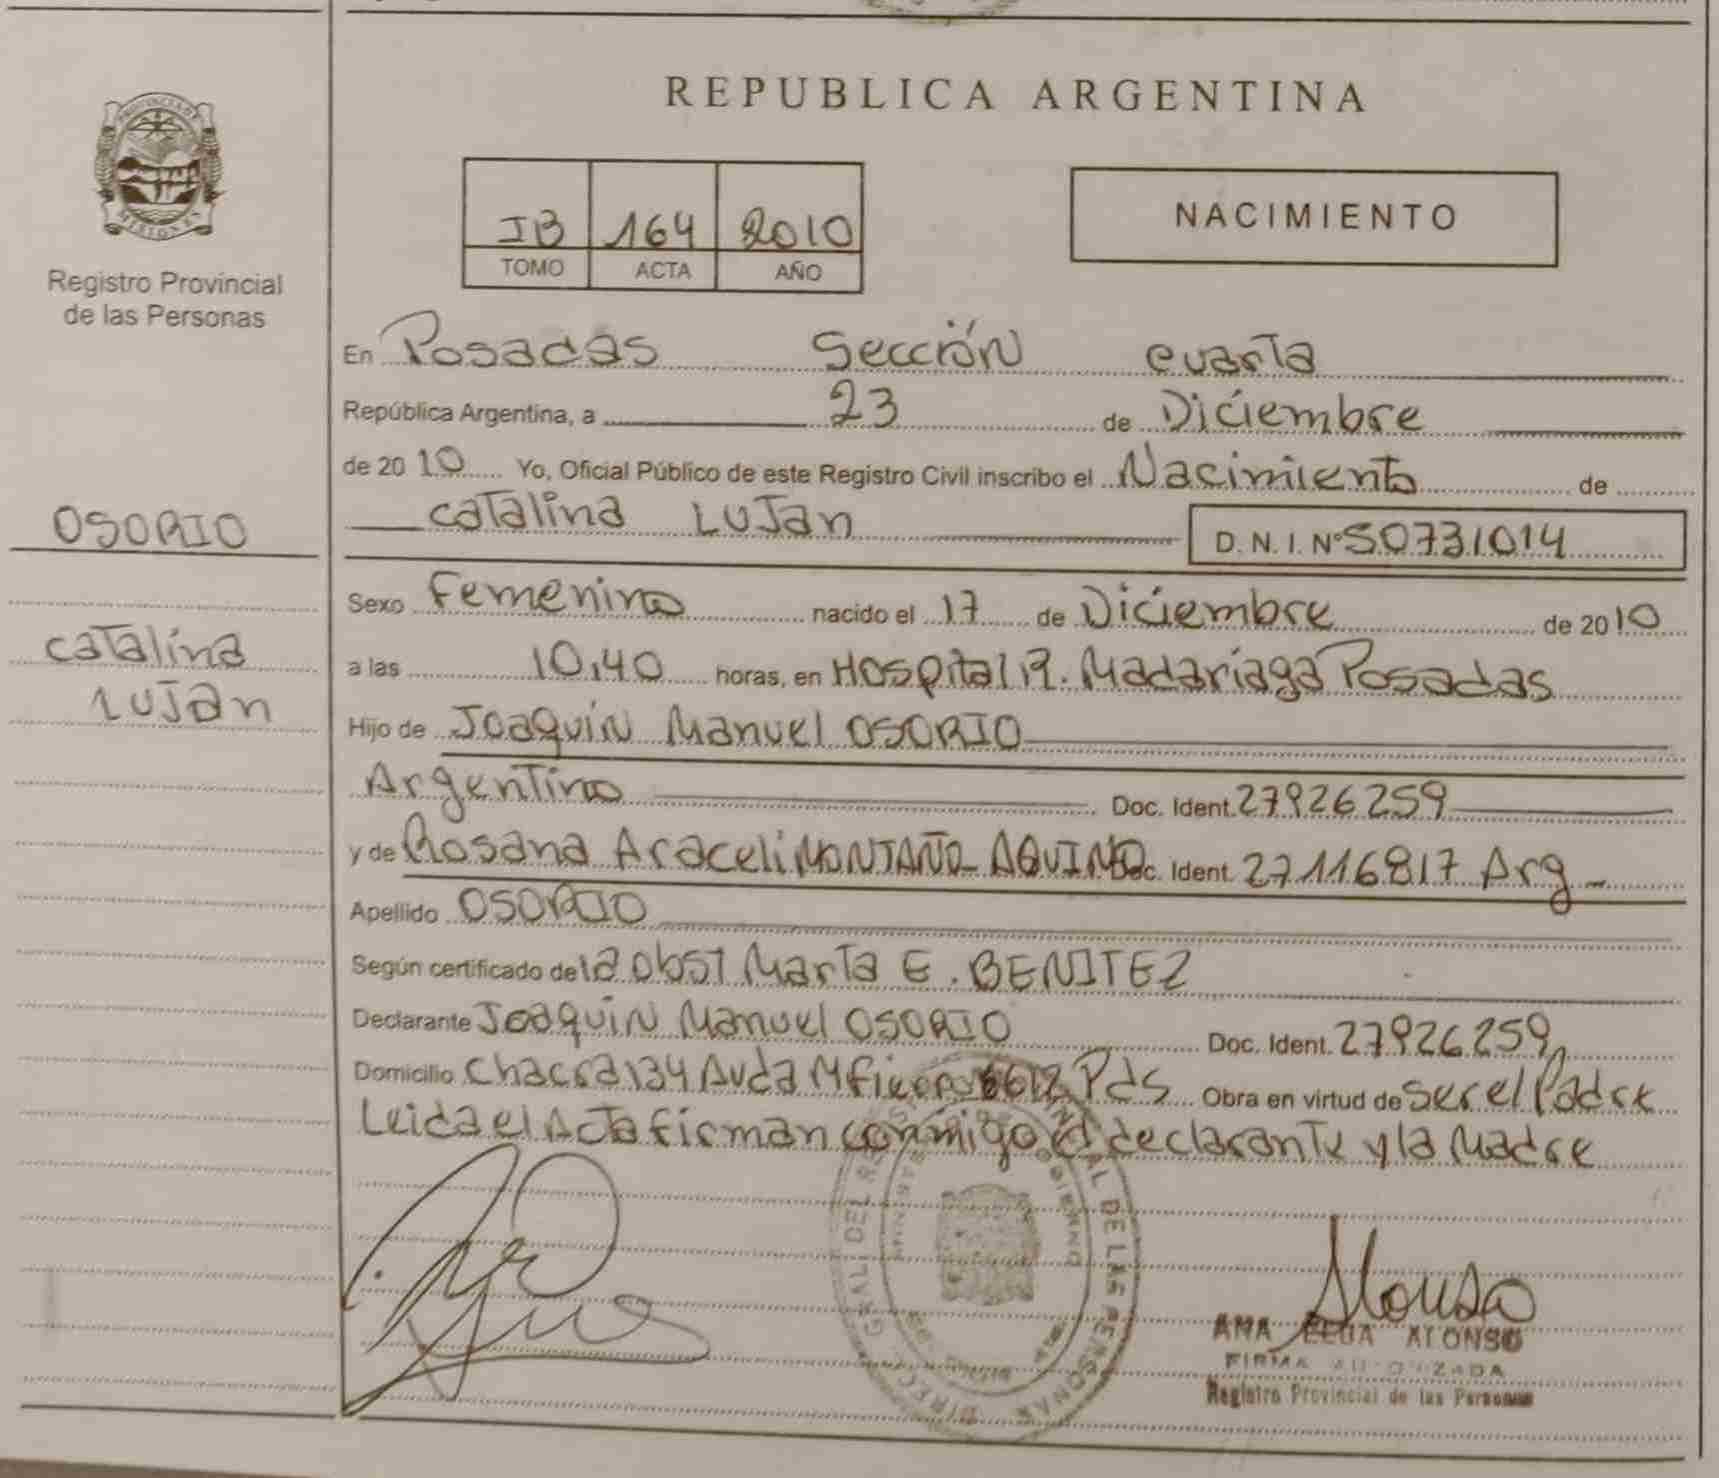 REPUBLICA ARGENTINA
PROVINCIA DE
MISIONES
Registro Provincial
de las Personas
IB 164 2010
TOMO ACTA AÑO
NACIMIENTO
En Posadas Sección cuarta
República Argentina, a 23 de Diciembre
de 2010 Yo, Oficial Público de este Registro Civil inscribo el Nacimiento de
Catalina Lujan D. N. I. Nº 50731014
OSORIO
Catalina
Lujan
Sexo Femenino nacido el 17 de Diciembre de 2010
a las 10,40 horas, en Hospital R. Madariaga Posadas
Hijo de Joaquin Manuel OSORIO
Argentino Doc. Ident. 27926259
y de Rosana Araceli MONTAÑO - AQUINO Doc. Ident. 27116817 Arg -
Apellido OSORIO
Según certificado de la obst Marta E. BENITEZ
Declarante Joaquin Manuel OSORIO Doc. Ident. 27926259
Domicilio Chacra 134 Avda Pds Obra en virtud de ser el Padre
Leida el Acta firman conmigo el declarante y la Madre
Alonso
ANA ELUA ALONSO
FIRMA AUTORIZADA
Registro Provincial de las Personas